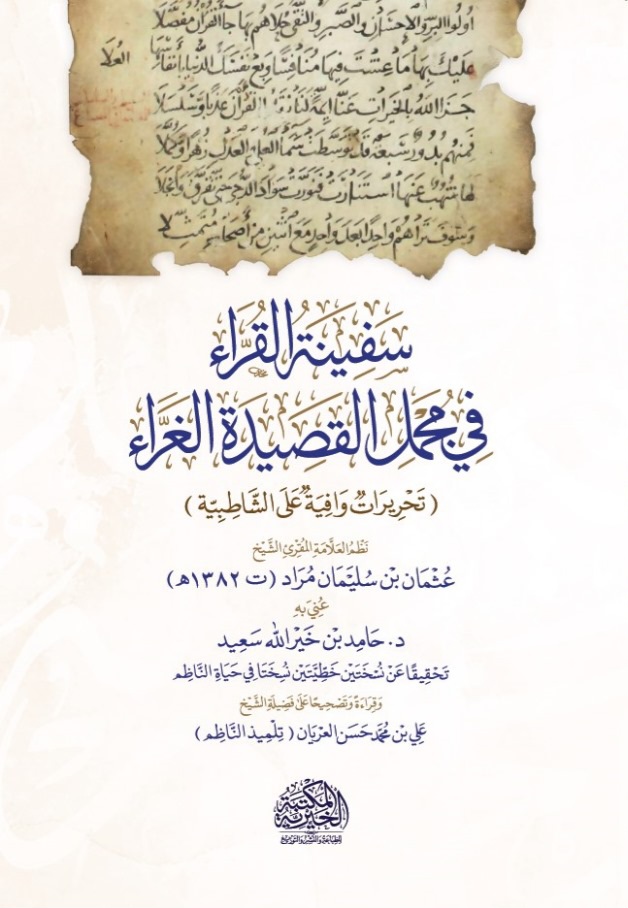 أولوا البر والإحسان والصبر والتقى حلاهم بها جا القران مفصلا
عليك بها ما عشت فيها منافسا وبع نفسك الدنيا بأنفاسها
العلا
جزا الله بالخيرات عنا ايمة لنا نقلوا القران عذبا وسلسلا
فمنهم بدور سبعة قد توسطت سما العلى والعدل زهرا وكملا
لها شهب عنها استنارت فنورت سواد الدجى حتى تفرق وانجلا
وسوف تراهم واحدا بعد واحد مع اثنين من أصحابه متمثلا
سَفِينَةُ القُرَّاء
فِي مُجْمَلِ القَصِيدَةِ الغَرَّاء
(تَحْرِيرَاتٌ وَافِيَةٌ عَلَى الشَّاطِبِيَّة)
نَظْمُ العَلَّامَةِ المُقْرِئِ الشَّيْخِ
عُثْمَان بْن سُلَيْمَان مُرَاد (ت ١٣٨٢هـ)
عُنِيَ بِهِ
د. حَامِد بْن خَيْر اللَّه سَعِيد
تَحْقِيقًا عَنْ نُسْخَتَيْن خَطِّيَّتَيْن نُسِخَتَا فِي حَيَاةِ النَّاظِم
وَقِرَاءَةً وَتَصْحِيحًا عَلَى فَضِيلَةِ الشَّيْخ
عَلِي بْن مُحَمَّد حَسَن العريَان (تِلْمِيذ النَّاظِم)
المكتبة
الخيرية
للطباعة والنشر والتوزيع